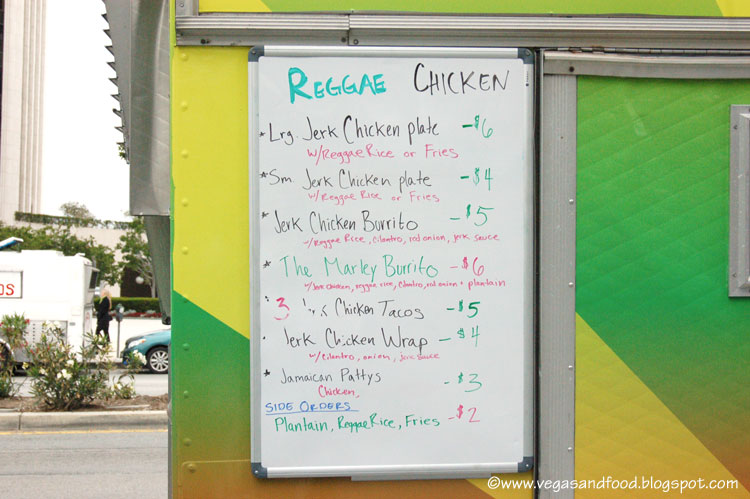 REGGAE CHICKEN
* Lrg. Jerk Chicken plate - $6
w/ Reggae Rice or Fries
* Sm. Jerk Chicken plate - $4
w/ Reggae Rice or Fries
* Jerk Chicken Burrito - $5
w/ Reggae Rice, cilantro, red onion, jerk sauce
* The Marley Burrito - $6
w/ Jerk chicken, reggae rice, cilantro, red onion + plantain
3 Chicken Tacos - $5
Jerk Chicken Wrap - $4
w/ cilantro, onion, jerk sauce
* Jamaican Pattys - $3
Chicken,
SIDE ORDERS
Plantain, Reggae Rice, Fries - $2
OS
©www.vegasandfood.blogspot.com